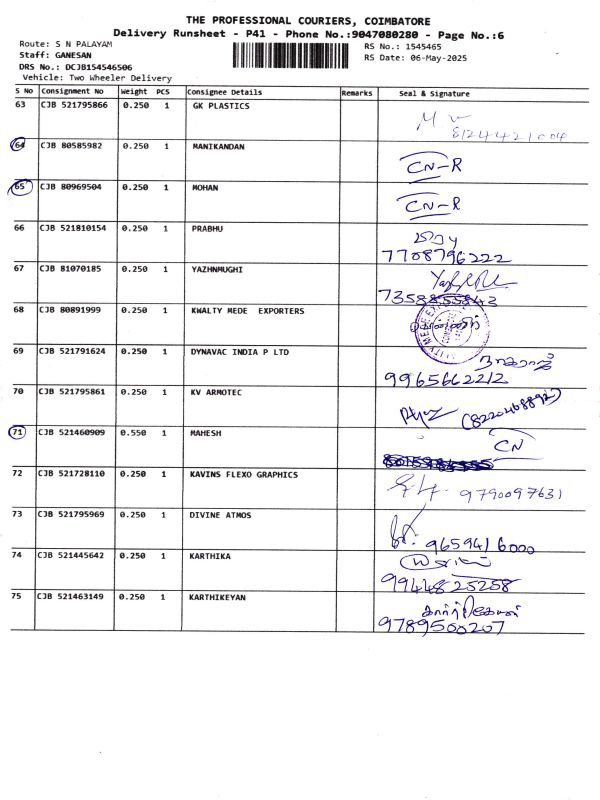 THE PROFESSIONAL COURIERS, COIMBATORE
Delivery Runsheet - P41 - Phone No.:9047080280 - Page No.:6
Route: S N PALAYAM
RS No.: 1545465
Staff: GANESAN
RS Date: 06-May-2025
DRS No.: DCJB154546506
Vehicle: Two Wheeler Delivery
S No Consignment No Weight PCS Consignee Details Remarks Seal & Signature
63 CJB 521795866 0.250 1 GK PLASTICS
8124421004
64 CJB 80585982 0.250 1 MANIKANDAN CN-R
65 CJB 80969504 0.250 1 MOHAN CN-R
66 CJB 521810154 0.250 1 PRABHU
7708796222
67 CJB 81070185 0.250 1 YAZHNMUGHI
68 CJB 80891999 0.250 1 KWALTY MEDE EXPORTERS
69 CJB 521791624 0.250 1 DYNAVAC INDIA P LTD
நாகராஜ்
9965662212
70 CJB 521795861 0.250 1 KV ARMOTEC (8220468892)
71 CJB 521460909 0.550 1 MAHESH CN
72 CJB 521728110 0.250 1 KAVINS FLEXO GRAPHICS 9790097631
73 CJB 521795969 0.250 1 DIVINE ATMOS
9659416000
74 CJB 521445642 0.250 1 KARTHIKA
9944825258
75 CJB 521463149 0.250 1 KARTHIKEYAN
கார்த்திகேயன்
9789500207